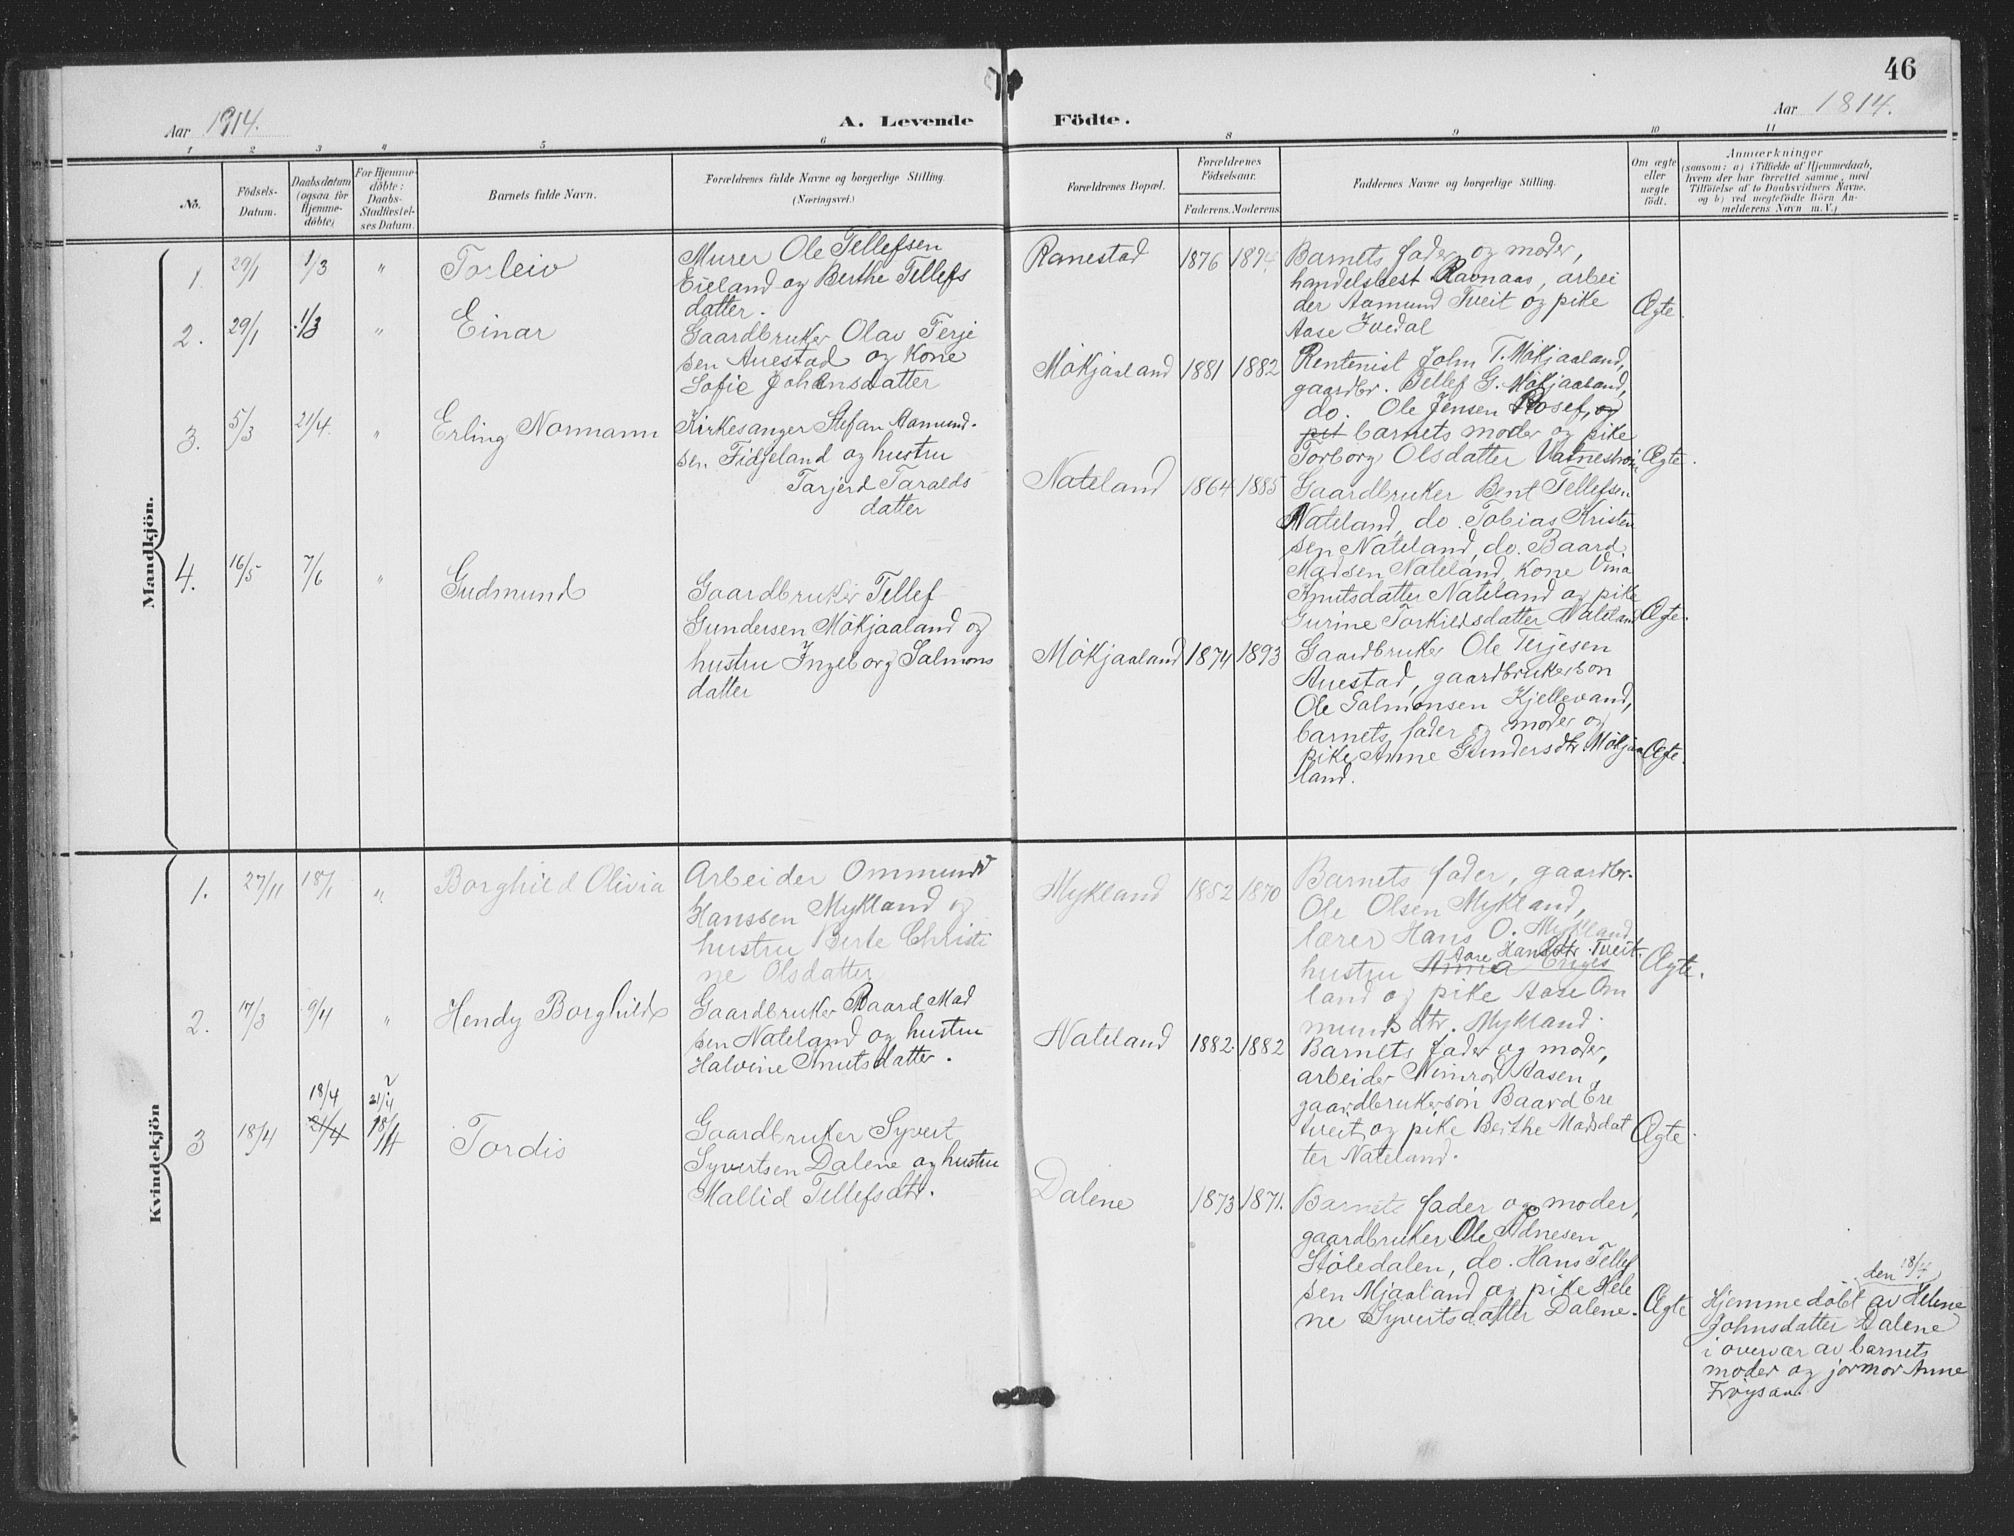 46
Aar 1914.
A. Levende Födte.
Aar 1814.
1 2 3 4 5 6 8 9 10 11
No.
Födsels-Datum.
Daabsdatum (ogsaa for Hjemme-döbte)
For Hjemme-döbte: Daabs-Stadfæstel-ses Datum.
Barnets fulde Navn.
Forældrenes fulde Navne og borgerlige Stilling. (Næringsvei.)
Forældrenes Bopæl.
Forældrenes Födselsaar.
Faderens. Moderens.
Faddernes Navne og borgerlige Stilling.
Om ægte eller uægte födt.
Anmærkninger
(saasom: a) i Tilfælde af Hjemmedaab,
hvem der har forrettet samme, med
Tilföielse af to Daabsvidners Navne,
og b) ved uegtefödte Börn An-
melderens Navn m. V.)
Mandkjön.
1. 29/1 1/3 " Torleiv
Murer Ole Tellefsen
Eieland og Berthe Tellefs
datter.
Ranestad 1876 1894
Barnets fader og moder,
handelsbest Ravnaas, arbei
der Aamund Tveit og pike
Aase Ivedal
Ægte
2. 29/1 1/3 " Einar
Gaardbruker Olav Terje
sen Auestad og Kone
Sofie Johansdatter
Mökjaaland 1881 1882
Rentenist John T. Mökjaaland,
gaardbr. Tellef G. Mökjaaland,
do. Ole Jensen Rosef, og
pit barnets moder og pike
Torborg Olsdatter
Ægte.
3. 5/3 21/4 " Erling Normann
Kirkesanger Stefan Aamund-
sen Fidjeland og hustru
Tarjerd Taralds
datter
Nateland 1864 1885
Gaardbruker Bent Tellefsen
Nateland, do. Tobias Kristen
sen Nateland, do. Baard
Madsen Nateland, Kone Vina
Knutsdatter Nateland og pike
Gurine Torkildsdatter Nateland
Ægte.
4. 16/5 7/6 " Gudmund
Gaardbruker Tellef
Gundersen Mökjaaland og
hustru Ingeborg Salmons
datter
Mökjaaland 1874 1893
Gaardbruker Ole Terjesen
Auestad, gaardbrukersön
Ole Salmonsen Kjellevand,
barnets fader og moder og
pike Anne Gundersdtr Mökjaa
land.
Ægte.
Kvindekjön
1. 27/11 18/1 " Borghild Olivia
Arbeider Ommund
Hanssen Mykland og
hustru Berte Christi
ne Olsdatter
Mykland 1852 1870
Barnets fader, gaardbr.
Ole Olsen Mykland,
lærer Hans O. Mykland
hustru Aase Hansdtr Tveit
land og pike Aase Om
munds dtr. Mykland.
Ægte.
2. 17/3 9/4 " Hendy Borghild
Gaardbruker Baard Mad
sen Nateland og hustru
Halvine Knutsdatter.
Nateland 1882. 1882
Barnets fader og moder,
arbeider Nimrod Aasen,
gaardbrukersön Baard Ere
tveit og pike Berthe Madsdat
ter Nateland.
Ægte.
3 18/4 18/4 21/4 18/4 Tordis
Gaardbruker Syvert
Syvertsen Dalene og hustru
Mallid Tellefsdtr.
Dalene 1873 1871.
Barnets fader og moder,
gaardbruker Ole Adnesen
Stöledalen, do. Hans Tellef
sen Mjaaland og pike Hele
ne Syvertsdatter Dalene.
Ægte
den 18/4
Hjemmedöbt av Helene
Johnsdatter Dalene
i overvær av barnets
moder og jormor Anne
Fröysaa.